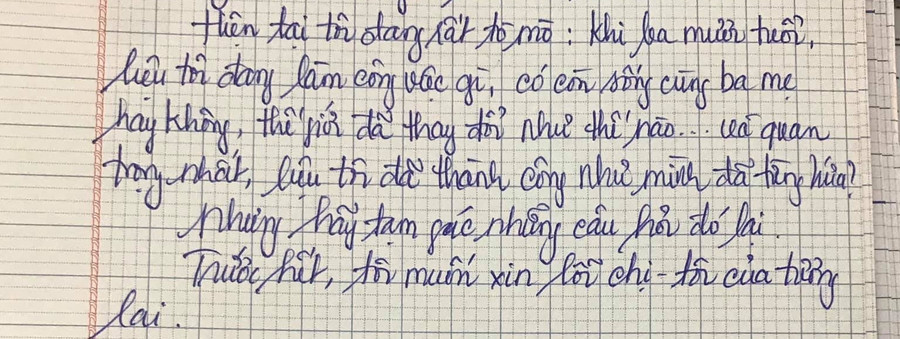 Hiện tại tôi đang rất tò mò: khi ba mươi tuổi,
liệu tôi đang làm công việc gì, có còn sống cùng ba mẹ
hay không, thế giới đã thay đổi như thế nào... và quan
trọng nhất, liệu tôi đã thành công như mình đã từng hứa?
Nhưng hãy tạm gác những câu hỏi đó lại.
Trước hết, tôi muốn xin lỗi chị - tôi của tương
lai.